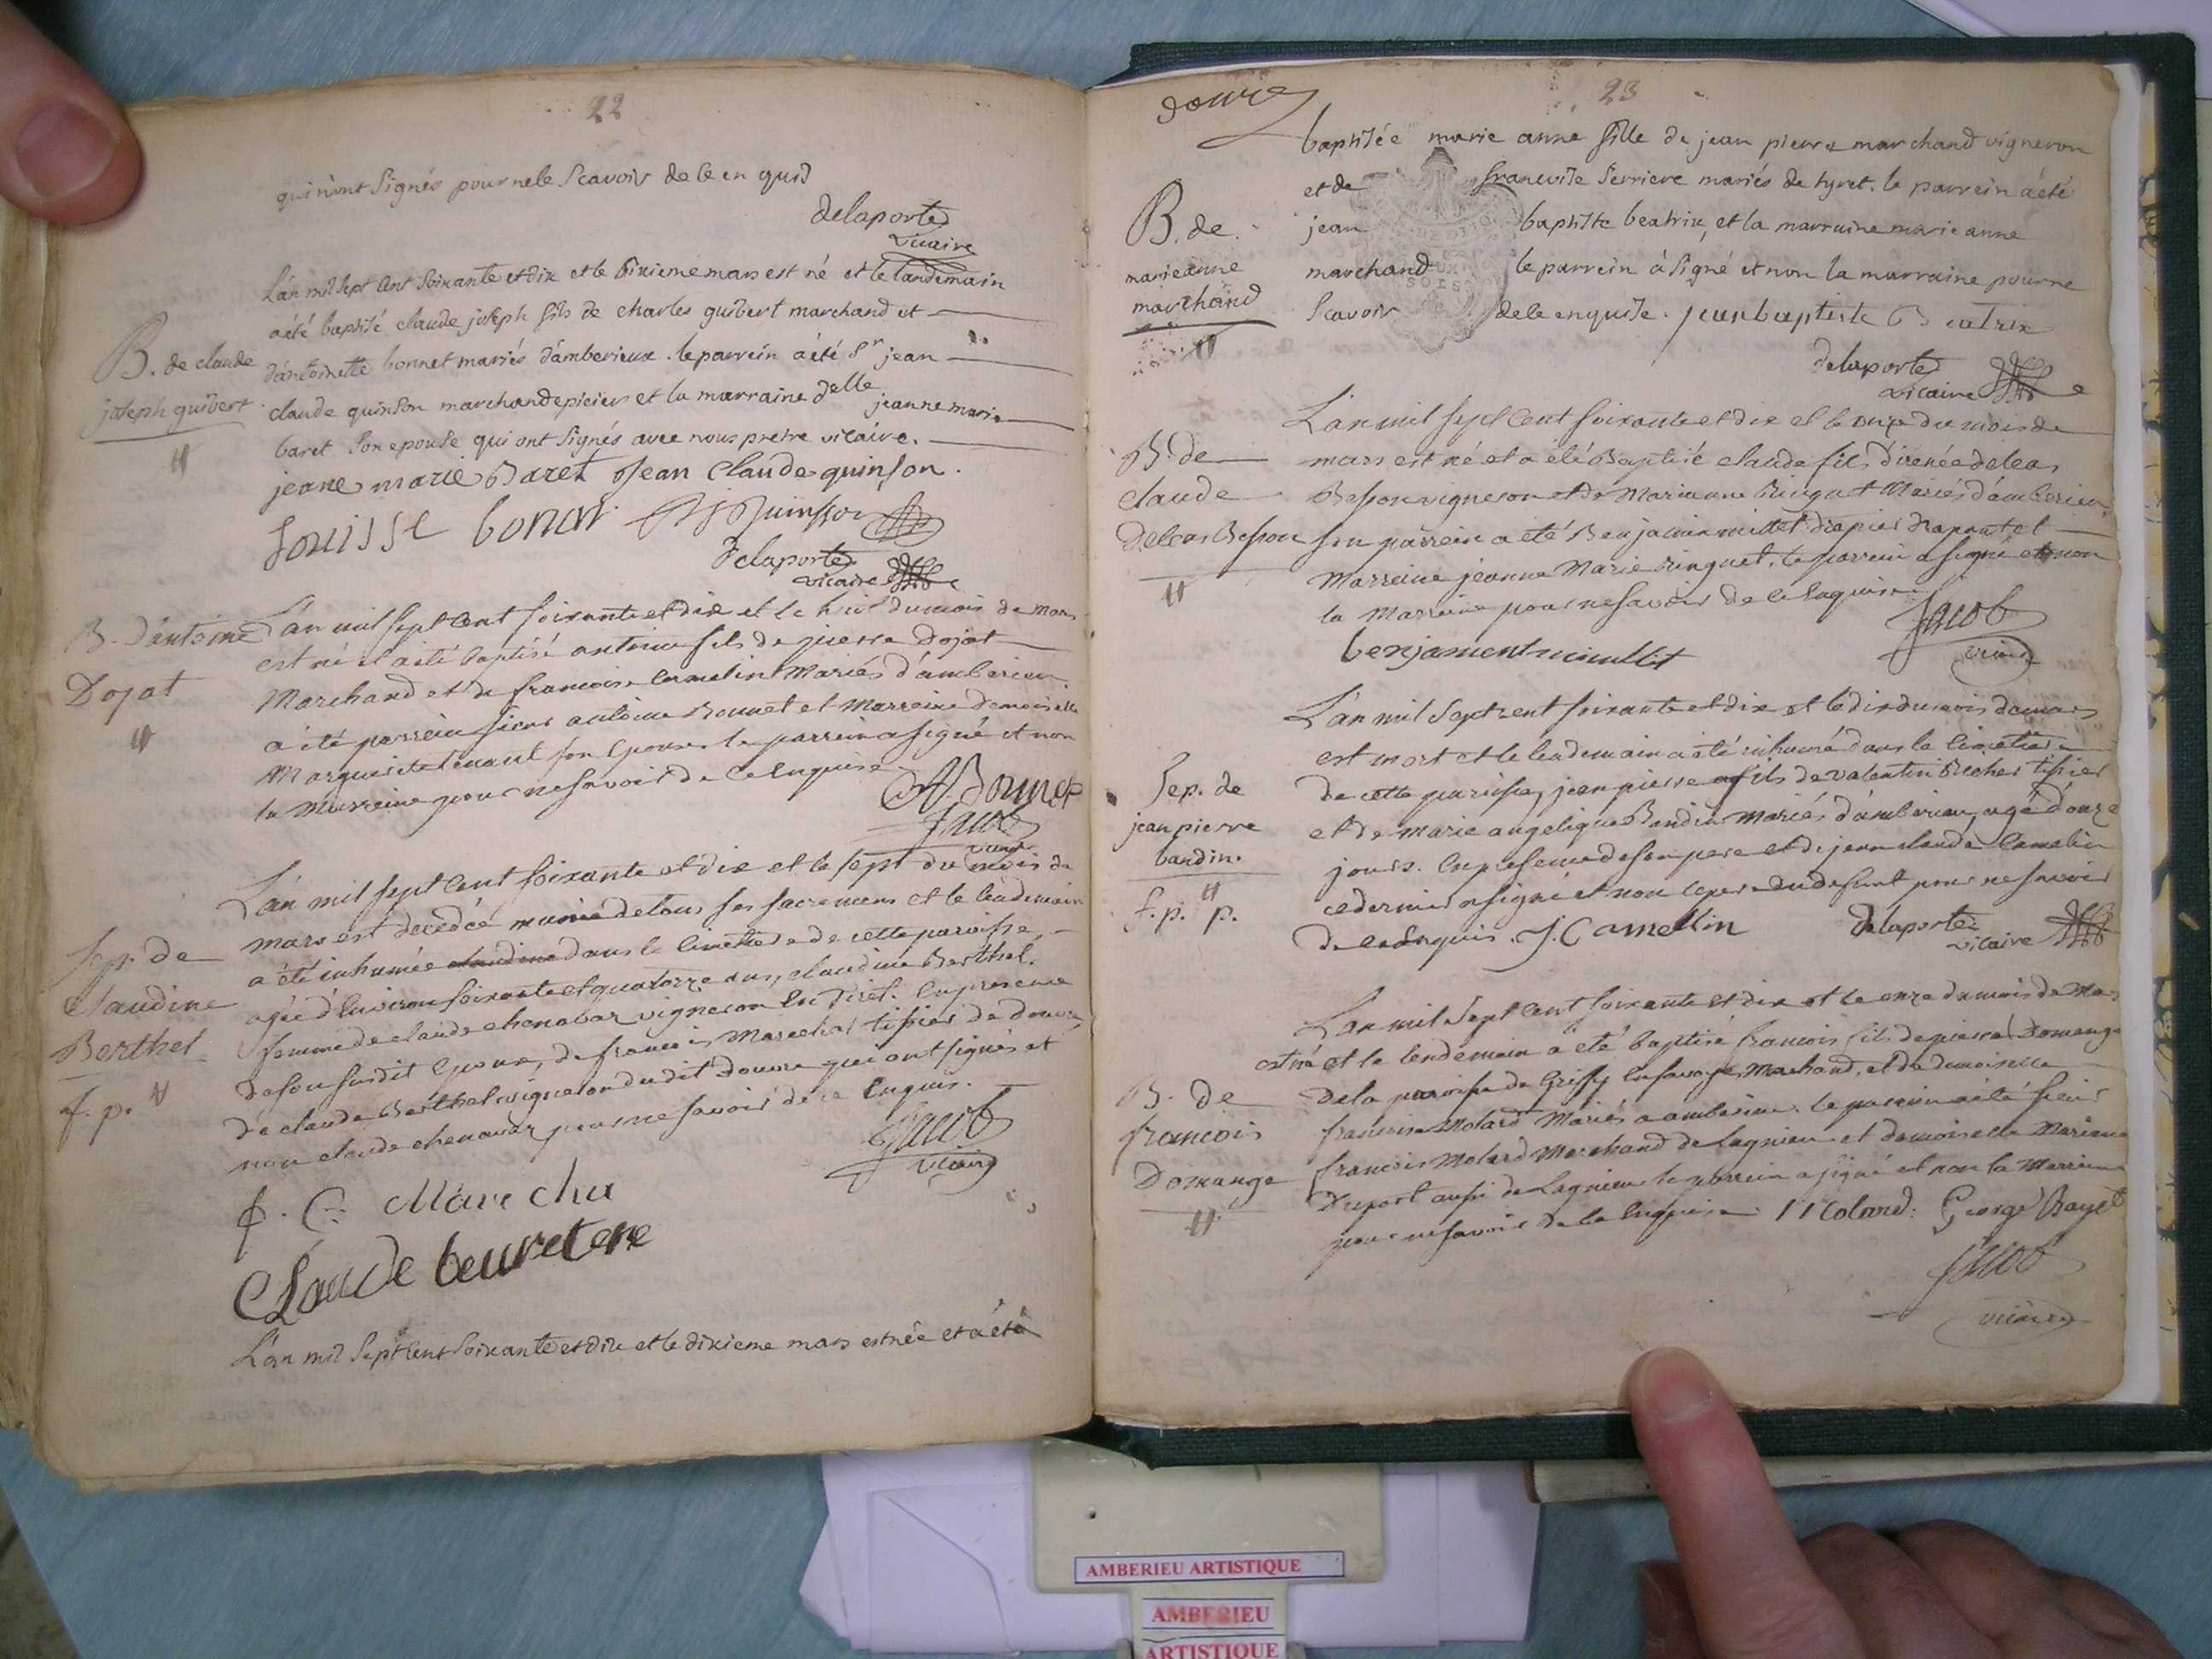 22
qui n'ont signés pour ne le scavoir de ce en quis
delaporte
vicaire
L'an mil sept cent soixante et dix et le sixieme mars est né et le landemain
a été baptisé claude joseph fils de charles guibert marchand et
d'antoinette bonnet mariés d'amberieux. le parrein a été Sr jean
claude quinson marchand epicier et la marraine delle jeanne marie
baret son epouse qui ont signés avec nous pretre vicaire.
B. de claude
joseph guibert
jeane marie Baret Jean Claude quinson.
Louisse bonet Quinsson
Delaporte
vicaire
B. d'antoine
Dojat
L'an mil sept cent soixante et dix et le huit du mois de mars
est né et a été baptisé antoine fils de pierre Dojat
Marchand et de francoise Camelin Mariés d'amberieu.
a été parrein sieur antoine Bonnet et Marreine demoiselle
Marguerite tenant son Epouse le parrein a signé et non
la Marreine pour ne savoir de ce Enquise.
A Bonnet
Jacob
vicaire
Sep. de
Claudine
Berthet
f. p.
L'an mil sept cent soixante et dix et le sept du mois de
mars est decedée munie de tous ses sacremens et le lendemain
a été inhumée claudine dans le cimetiere de cette paroisse,
agée d'Environ soixante et quatorze ans, claudine Berthet.
femme de claude chenavaz vigneron En Tiret. En presence
de son susdit Epoux, de francois Marechal tissier de Douvre,
de claude Berthet vigneron dudit Douvre qui ont signés et
non claude chenavaz pour ne savoir de ce Enquis.
Jacob
vicaire
f. C Marecha
Claude beuretere
L'an mil sept cent soixante et dix et le dixieme mars est née et a été
23
douvre
B. de
marieanne
marchand
baptisée marie anne fille de jean pierre marchand vigneron
et de francoise serriere mariés de tyret. le parrein a été
jean baptiste beatrix, et la marraine marie anne
marchand le parrein a signé et non la marraine pour ne
scavoir de ce enquise. jean baptiste Beatrix
delaporte
vicaire
B. de
Claude
Deleas Besson
L'an mil sept cent soixante et dix et le onze du mois de
mars est né et a été Baptisé claude fils d'irenée deleas
Besson vigneron et de Marianne Ringuet Mariés d'amberieu,
son parrein a été Benjamin millet drapier Drapant et
Marreine jeanne Marie ringuet. le parrein a signé et non
la Marreine pour ne savoir de ce Enquise.
Jacob
vicaire
benjament mioullet
Sep. de
jean pierre
baudin.
f. p. p.
L'an mil sept cent soixante et dix et le dix du mois de mars
est mort et le lendemain a été inhumé dans le cimetiere
de cette paroisse, jean pierre fils de valentin Bucher tissier
et de marie angelique Baudin Mariés d'amberieu, agé d'onze
jours. En presence de son pere et de jean claude Camelin
ce dernier a signé et non le pere du defunt pour ne savoir
de ce Enquis. J. Camellin
Delaporte
vicaire
B. de
francois
Domange
L'an mil sept cent soixante et dix et le onze du mois de Mars
est né et le lendemain a été baptisé francois fils de pierre Domenge
de la paroisse de Grissy En savoye, Marchand, et de demoiselle
francoise Molard Mariés a amberieu. le parrein a été sieur
francois Molard Marchand de Lagnieu et demoiselle Marianne
Duport aussi de Lagnieu le parrein a signé et non la Marreine
pour ne savoir de ce Enquise. Molard. George Bayet
Jacob
vicaire
AMBERIEU ARTISTIQUE
AMBERIEU
ARTISTIQUE